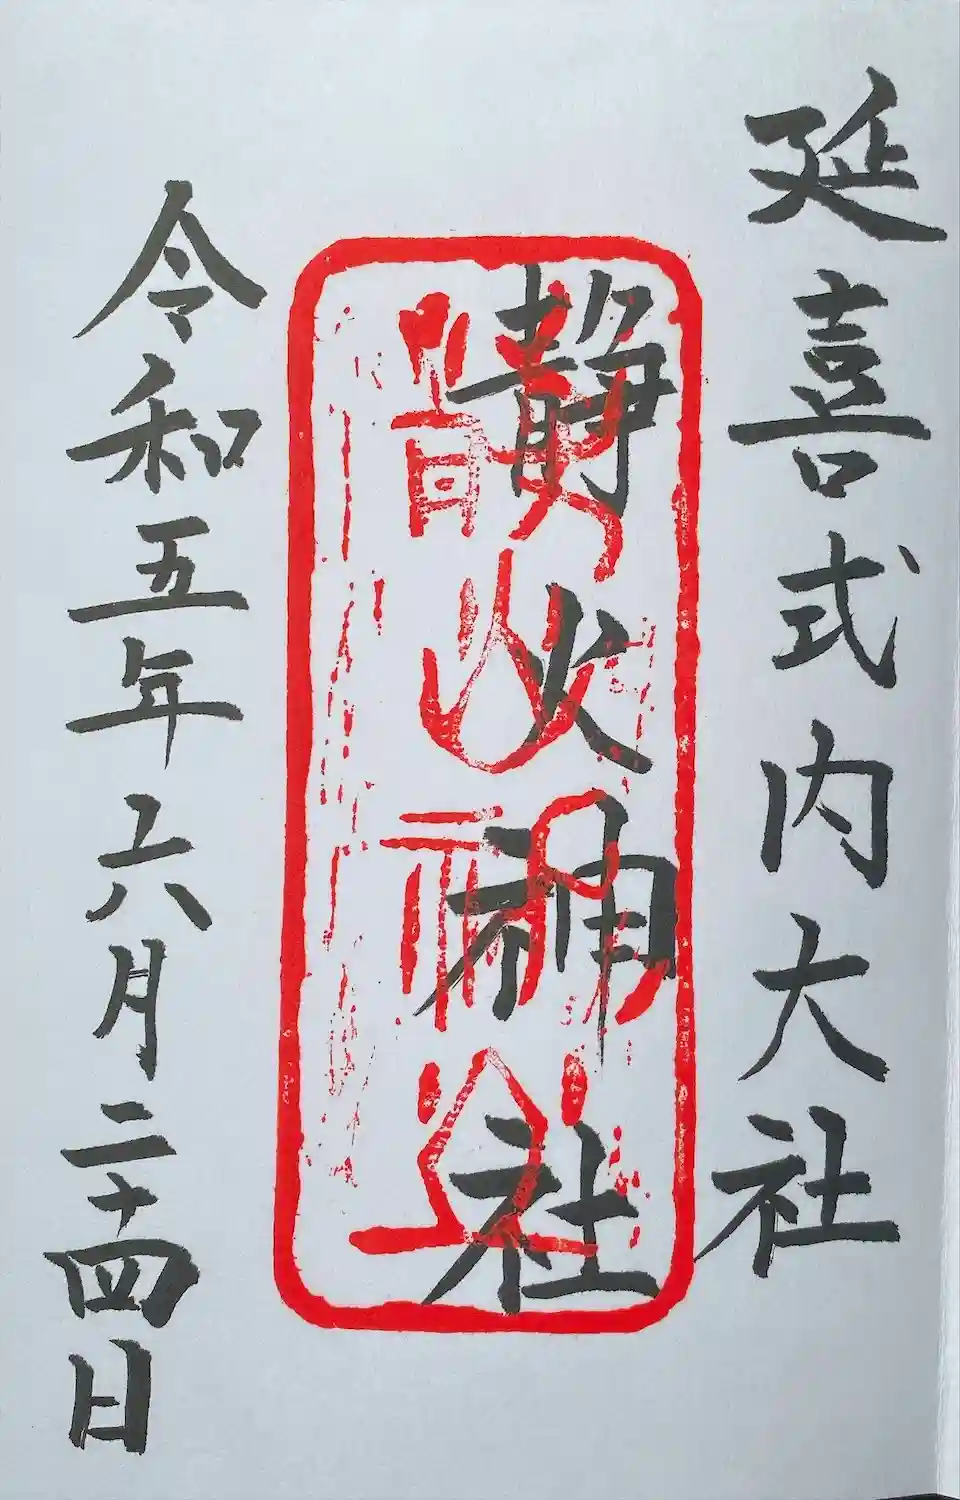 延喜式内大社
静火神社
令和五年六月二十四日